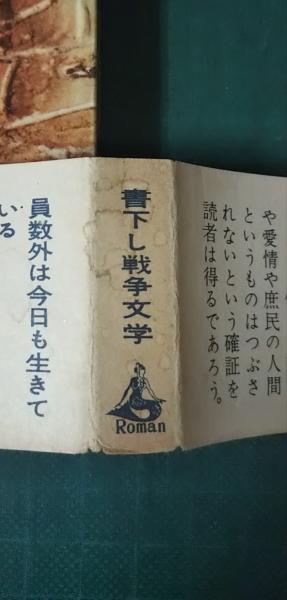 や愛情や庶民の人間
というものはつぶさ
れないという確証を
読者は得るであろう。
書下し戦争文学
Roman
員数外は今日も生きて
いる